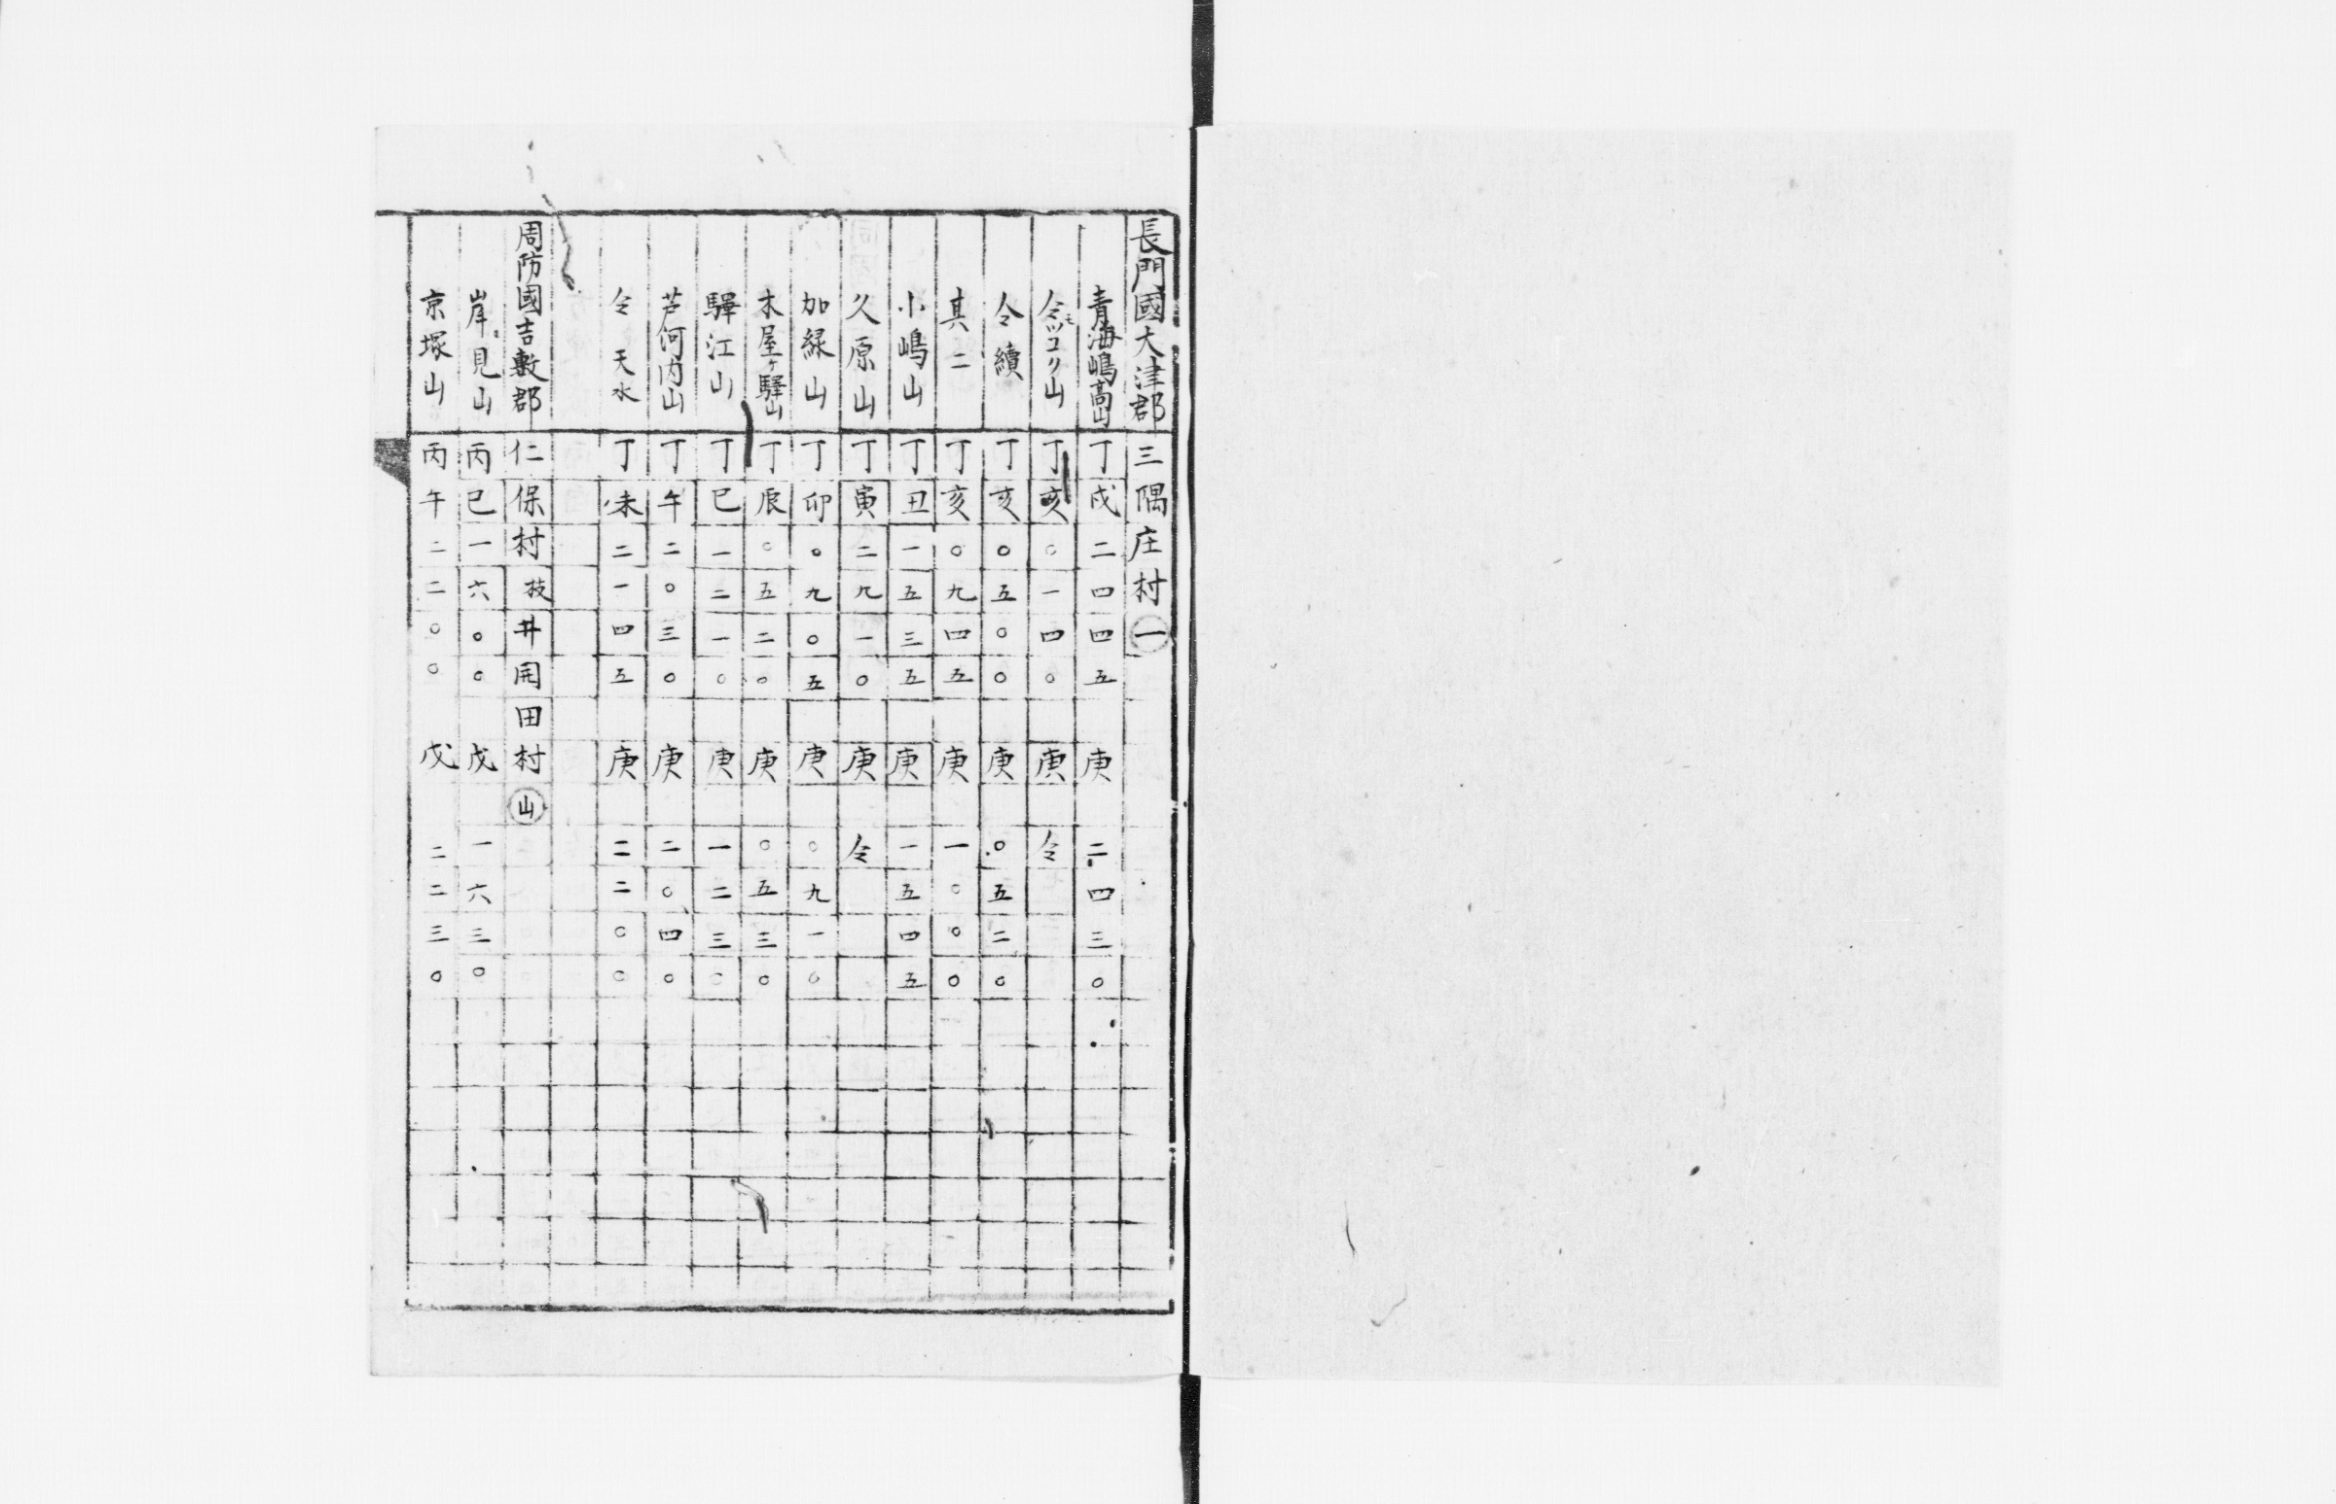 長門國大津郡三隅庄村㊀
青海嶋高山丁戌二四四五庚二四三〇
仝モツコリ山丁亥〇一四〇庚仝
仝續丁亥〇五〇〇庚〇五二〇
其二丁亥〇九四五庚一〇〇〇
小嶋山丁丑一五三五庚一五四五
久原山丁寅二九一〇庚仝
加緑山丁卯〇九〇五庚〇九一〇
木屋ヶ驛山丁辰〇五二〇庚〇五三〇
驛江山丁巳一二一〇庚一二三〇
芦河内山丁午二〇三〇庚二〇四〇
仝天水丁未二一四五庚二二〇〇
周防國吉敷郡仁保村技井開田村㊤
岸見山丙巳一六〇〇戊一六三〇
京塚山丙午二二〇〇戊二二三〇